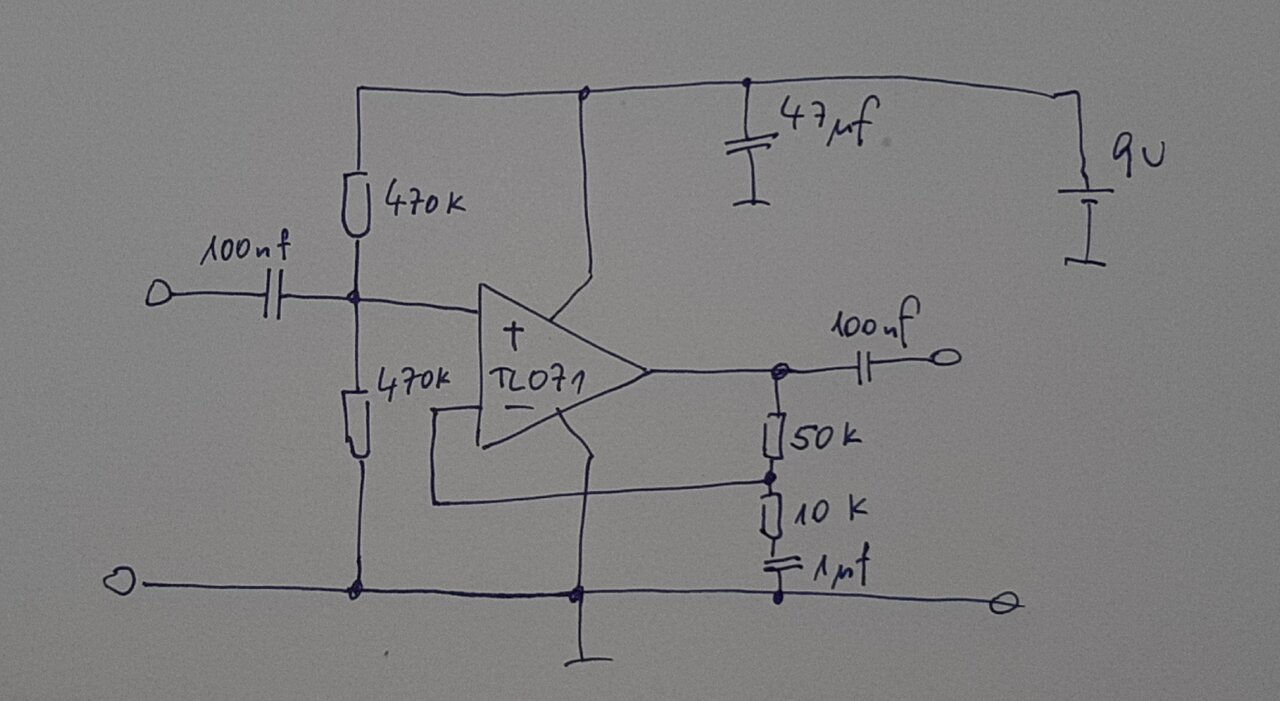 47µf
9V
470K
100nf
100nf
+
TL071
470K
−
50K
10 K
1µf